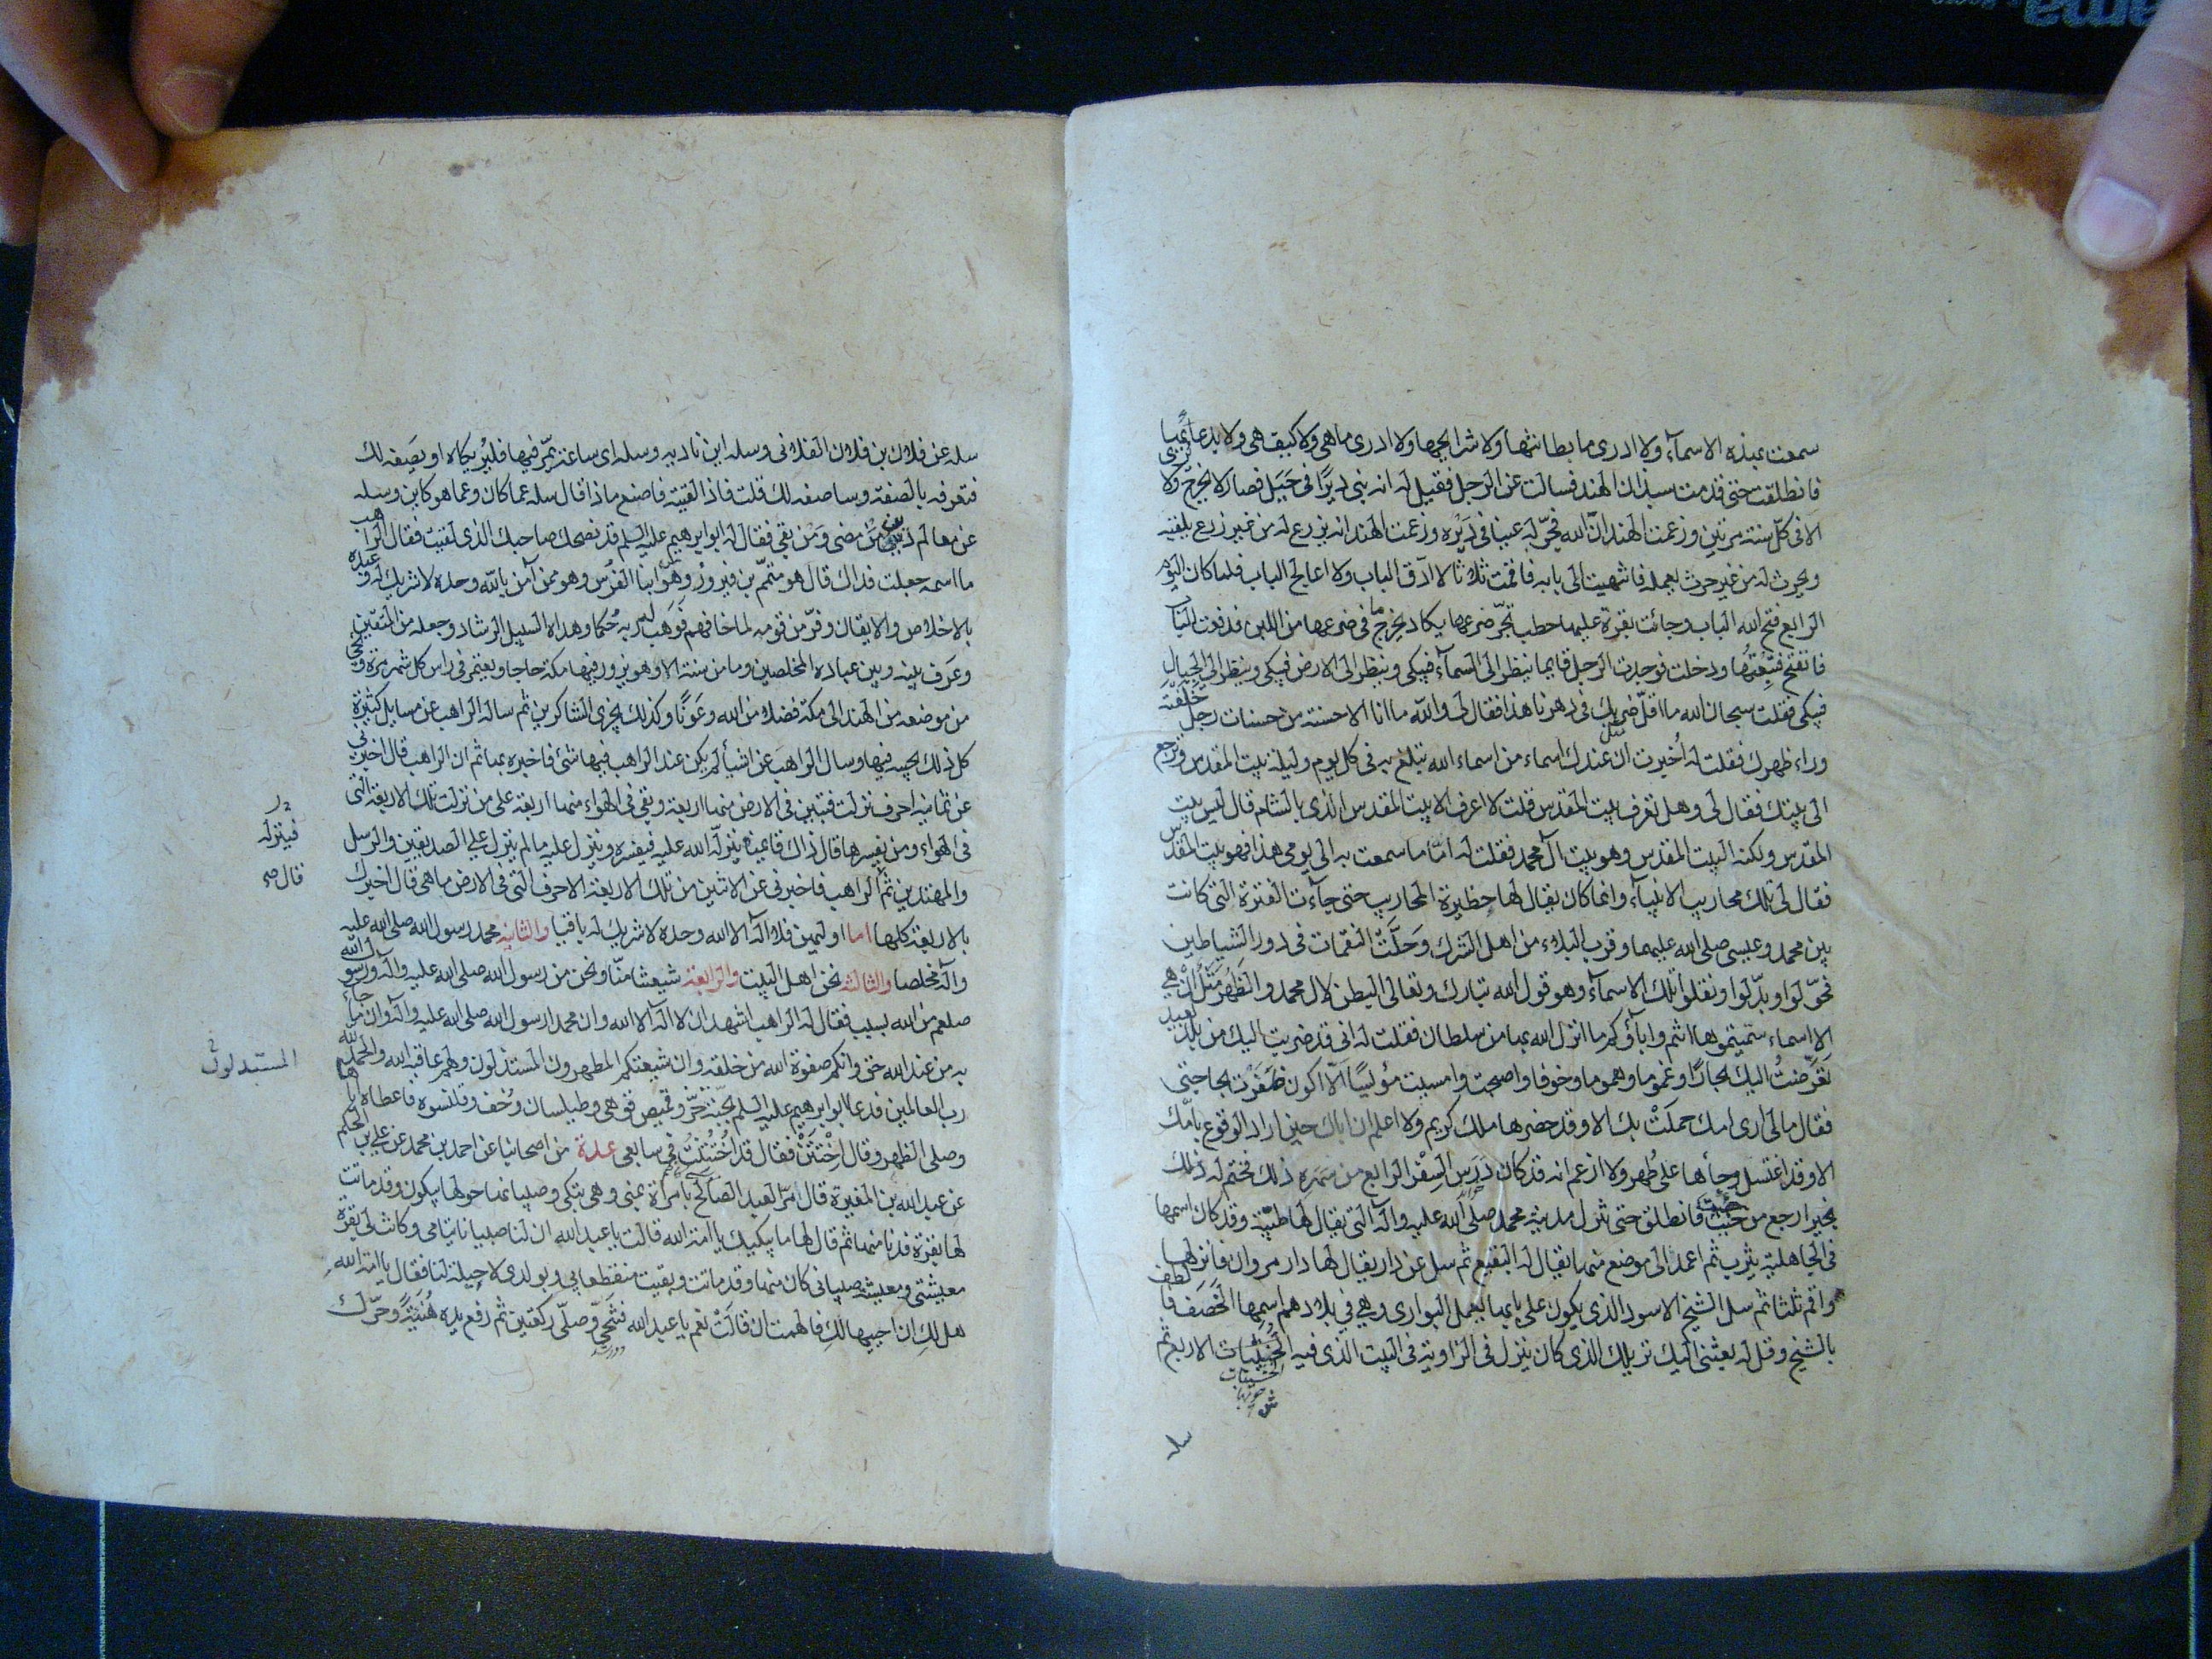 سمعت بهذه الاسمآء ولا ادرى ما بطانتها ولا شرايحها ولا ادرى ما هى ولا كيف هى ولا بدعائها
فانطلقت حتى قدمت سبذان الهند فسالت عن الرجل فقيل له انه بنى ديرًا فى جَبَل فصار لا يخرج ولا يُرى
الا فى كلّ سنة مرتين وزعمت الهند انّ الله فجّر له عينا فى دَيْرِه وزعمت الهند انه يزرع له من غير زرع يلقيه
ويحرث له من غير حرث يعمله فانتهيت الى بابه فاقمت ثلثا لا ادّق الباب ولا اعالج الباب فلما كان اليوم
الرابع فتح الله الباب وجائت بقرة عليها حطب تجّر ضرعها يكاد يخرج ما فى ضرعها من اللبن فدفعت الباب
فانفتح فتبعتُها ودخلت فوجدت الرجل قايما ينظر الى السمآء فيبكى وينظر الى الارض فيبكى وينظر الى الجبال
فيبكى فقلت سبحان الله ما اقلّ ضربك فى دهرنا هذا فقال لى والله ما انا الا حسنة من حسنات رجل خلّفته
وراء ظهرك فقلت له اُخبرت ان عندك اسماء من اسماء الله تبلغ به فى كل يوم وليلة بيت المقدس وترجع
الى بيتك فقال لى وهل تعرف بيت المقدس قلت لا اعرف الا بيت المقدس الذى بالشام قال ليس بيت
المقدس ولكنه البيت المقدس وهو بيت آل محمد فقلت له امّا ما سمعت به الى يومى هذا فهو بيت المقدس
فقال لى تلك محاريب الانبيآء وانما كان يقال لها حظيرة المحاريب حتى جآءت الفترة التى كانت
بين محمد وعيسى صلى الله عليهما وقرب البلاء من اهل الشرك وَحَلَّتْ النقمات فى دور الشياطين
فحوّلوا وبدّلوا ونقلوا تلك الاسمآء وهو قول الله تبارك وتعالى البطن لال محمد والظَهر مَثَلٌ ان هى
الا اسماء سمّيتموها انتم واباؤكم ما انزل الله بها من سلطان فقلت له انى قد ضربت اليك من بلد بعيد
تعَرَّضتُ اليك بحارًا وغموما وهموما وخوفا واصبحت وامسيت مؤيسًا الّا اكون ظفرْت بحاجتى
فقال ما لى ارى امك حملَتْ بك الا وقد حضرها ملك كريم ولا اعلم ان اباك حين اراد الوقوع باُمّك
الا وقد اغتسل وجاءها على طُهر ولا ازعم انه قد كان دَرَس السِفْر الرابع من سَهَرِه ذلك فختم له ذلك
بخير ارجع من حَيْثُ جئت فانطلق حتى تنزل مدينة محمد صلى الله عليه وآله التى يقال لها طيّبة وقد كان اسمها
فى الجاهلية يثرب ثم اعمد الى موضع منها يقال له البقيع ثم سل عن دار يقال لها دار مروان فانزلها
واقم ثلثا ثم سل الشيخ الاسود الذى يكون على بابها يعمل البوارى وهى فى بلادهم اسمها الخَصَف فالطف
بالشيخ وقل له بعثنى اليك نزيلك الذى كان ينزل فى الزاوية فى البيت الذى فيه الخشيبات الاربع ثم
الخشبات
سله
سله عن فلان بن فلان الفلانى وسله اين ناديه وسله اى ساعة يمّر فيها فليُريكاه او يَصِفه لك
فتعرفه بالصفة وساصفه لك قلت فاذا لقيته فاصنع ماذا قال سله عما كان وعما هو كاين وسله
عن معالم دين من مضى ومن بقى فقال له ابو ابرهيم عليه السلم قد نصحك صاحبك الذى لقيت فقال الراهب
ما اسمه جعلت فداك قال هو متمّم بن فيروز وهو من ابناء الفُرْس وهو ممن آمن بالله وحده لا شريك له وعبده
بالاخلاص والايقان وفرّ من قومه لما خافهم فوَهَب له ربه حُكما وهداه السبيل الرشاد وجعله من المتقين
وعَرَف بينه وبين عباده المخلصين وما من سنة الا وهو يزور فيها مكة حاجا ويعتمر فى راس كل شهر مرّة ويجئ
من موضعه من الهند الى مكة فضلا من الله وعَونًا وكذلك يجزى الشاكرين ثم ساله الراهب عن مسايل كثيرة
كل ذلك يجيبه فيها وسال الراهبَ عن اشيآء لم يكن عند الراهب فيها شئ فاخبره بها ثم ان الراهب قال اخبرنى
عن ثمانية احرف نزلت فتبيّن فى الارض منها اربعة وبقى فى الهواء منها اربعة على من نزلت تلك الاربعة التى
فى الهواء ومن يفسرها قال ذاك قايمنا ينزّله الله عليه فيفسره وينزل عليه ما لم ينزل على الصديقين والرسل
والمهتدين ثم الراهب فاخبرنى عن الاثنين من تلك الاربعة الاحرف التى فى الارض ما هى قال اخبرك
بالاربعة كلها اما اوليهن فلا اله الا الله وحده لا شريك له باقيا والثانية محمد رسول الله صلى الله عليه
وآله مخلصا والثالثة نحن اهل البيت والرابعة شيعتنا منّا ونحن من رسول الله صلى الله عليه وآله ورسول الله
صلعم من الله بسبب فقال له الراهب اشهد ان لا اله الا الله وان محمدا رسول الله صلى الله عليه وآله وان ما جاء
به من عند الله حق وانكم صفوة الله من خلقه وان شيعتكم المطهرون المستذلون ولهم عاقبة الله والحمد لله
رب العالمين فدعا ابو ابرهيم عليه السلم بجُبّة خزّ وقميص قوهى وطيلسان وخُف وقلنسوه فاعطاه اياها
وصلى الظهر وقال اِخْتَتِنْ فقال قد اُخْتُتِنْتُ فى سابعى عدة من اصحابنا عن احمد بن محمد عن على بن الحكم
عن عبد الله بن المغيرة قال مرّ العبد الصالح بامراة بمنى وهى تبكى وصبيانها حولها يبكون وقد ماتت
لها بقرة فدنا منها ثم قال لها ما يبكيك يا امة الله قالت يا عبد الله ان لنا صبيانا يتامى وكانت لى بقرة
معيشتى ومعيشة صبيانى كان منها وقد ماتت وبقيت منقطعا بى وبولدى لا حيلة لنا فقال يا امة الله
هل لكِ ان احييها لكِ فالهمت ان قالَتْ نعم يا عبد الله فتنحّى وصلّى ركعتين ثم رفع يده هُنَيْئَةً وحرّك
فينزله
قال صح
المستبدلون